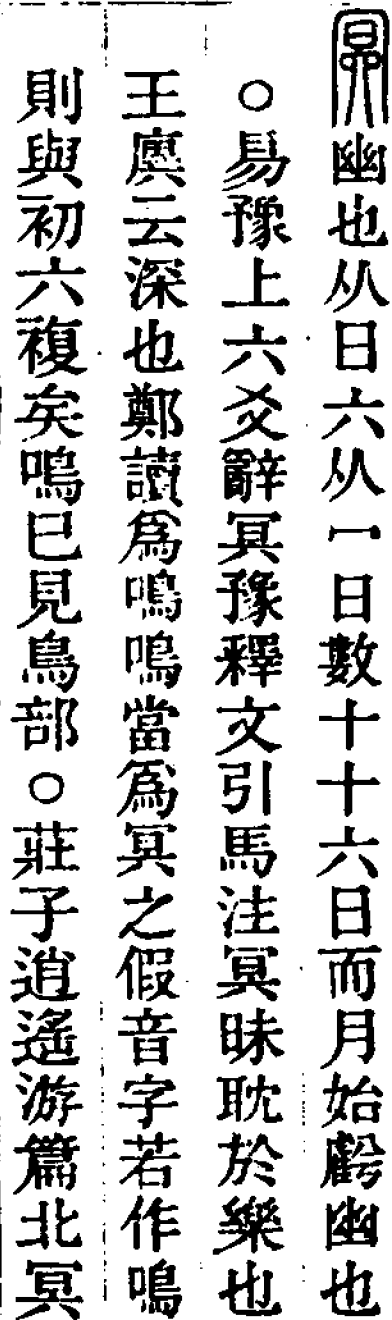 冥幽也从日六从冖日數十十六日而月始虧幽也
○易豫上六爻辭冥豫釋文引馬注冥昧耽於樂也
王廙云深也鄭讀爲鳴鳴當爲冥之假音字若作鳴
則與初六複矣鳴巳見鳥部○莊子逍遙游篇北冥